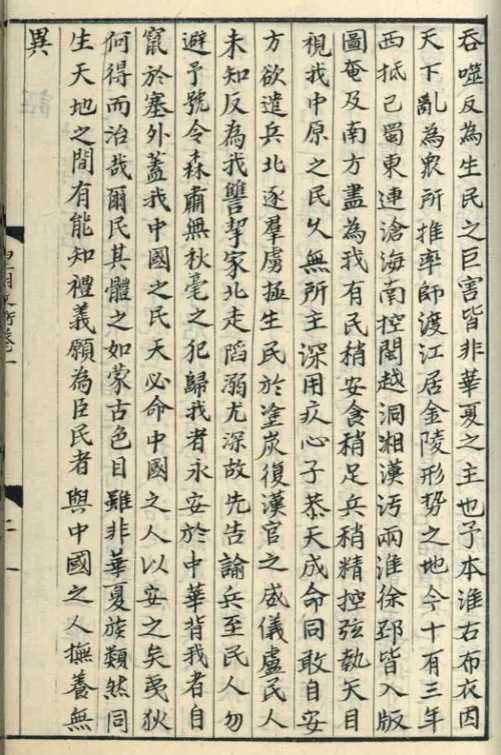 吞噬反為生民之巨害皆非華夏之主也予本淮右布衣因
天下亂為眾所推率師渡江居金陵形势之地今十有三年
西抵巴蜀東連滄海南控閩越洞湘漢沔兩淮徐邳皆入版
圖奄及南方盡為我有民稍安食稍足兵稍精控弦執矢目
視我中原之民久無所主深用疚心予恭天成命罔敢自安
方欲遣兵北逐羣虜拯生民於塗炭復漢官之威儀慮民人
未知反為我讐挈家北走陷溺尤深故先告諭兵至民人勿
避予號令森肅無秋毫之犯歸我者永安於中華背我者自
竄於塞外蓋我中國之民天必命中國之人以安之矣夷狄
何得而治哉爾民其體之如蒙古色目雖非華夏族類然同
生天地之間有能知禮義願為臣民者與中國之人撫養無
異